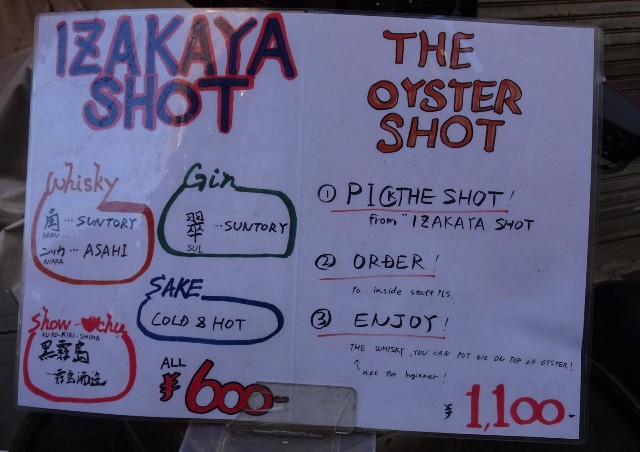 IZAKAYA
SHOT
Whisky
角…SUNTORY
KAKU
ニッカ…ASAHI
NIKKA
Gin
翠…SUNTORY
SUI
SAKE
COLD & HOT
Show-❤chu
KURO-KIRI-SHIMA
黒霧島
…霧島酒造
ALL
¥600-
THE
OYSTER
SHOT
① PICK THE SHOT!
from "IZAKAYA SHOT
② ORDER!
to inside staff PLS.
③ ENJOY!
THE WHISKY, YOU CAN PUT ON TOP OF OYSTER!
not for beginner!
¥1,100-